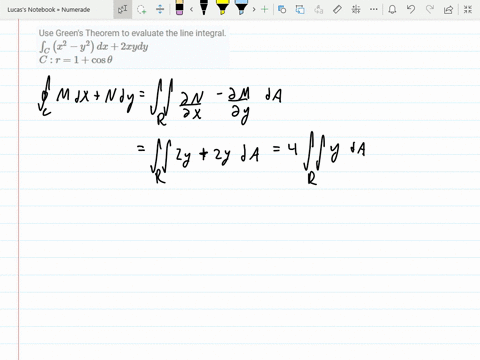 Lucas's Notebook • Numerade
Use Green's Theorem to evaluate the line integral.
∫_C (x² − y²) dx + 2xydy
C : r = 1 + cos θ
∮_C M dx + N dy = ∬_R ∂N/∂x − ∂M/∂y dA
= ∬_R 2y + 2y dA = 4 ∬_R y dA